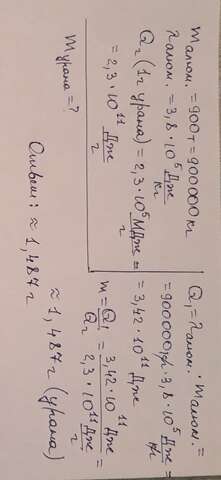 m алюм. = 900т = 900000 кг
λ алюм. = 3,8 · 10⁵ Дж/кг
Q₂ (1г урана) = 2,3 · 10⁵ МДж/г =
= 2,3 · 10¹¹ Дж/г
m урана = ?
Q₁ = λ алюм. · m алюм. =
= 900000 кг · 3,8 · 10⁵ Дж/кг =
= 3,42 · 10¹¹ Дж
m = Q₁/Q₂ = 3,42 · 10¹¹ Дж / 2,3 · 10¹¹ Дж/г =
≈ 1,487 г (урана)
Ответ: ≈ 1,487 г